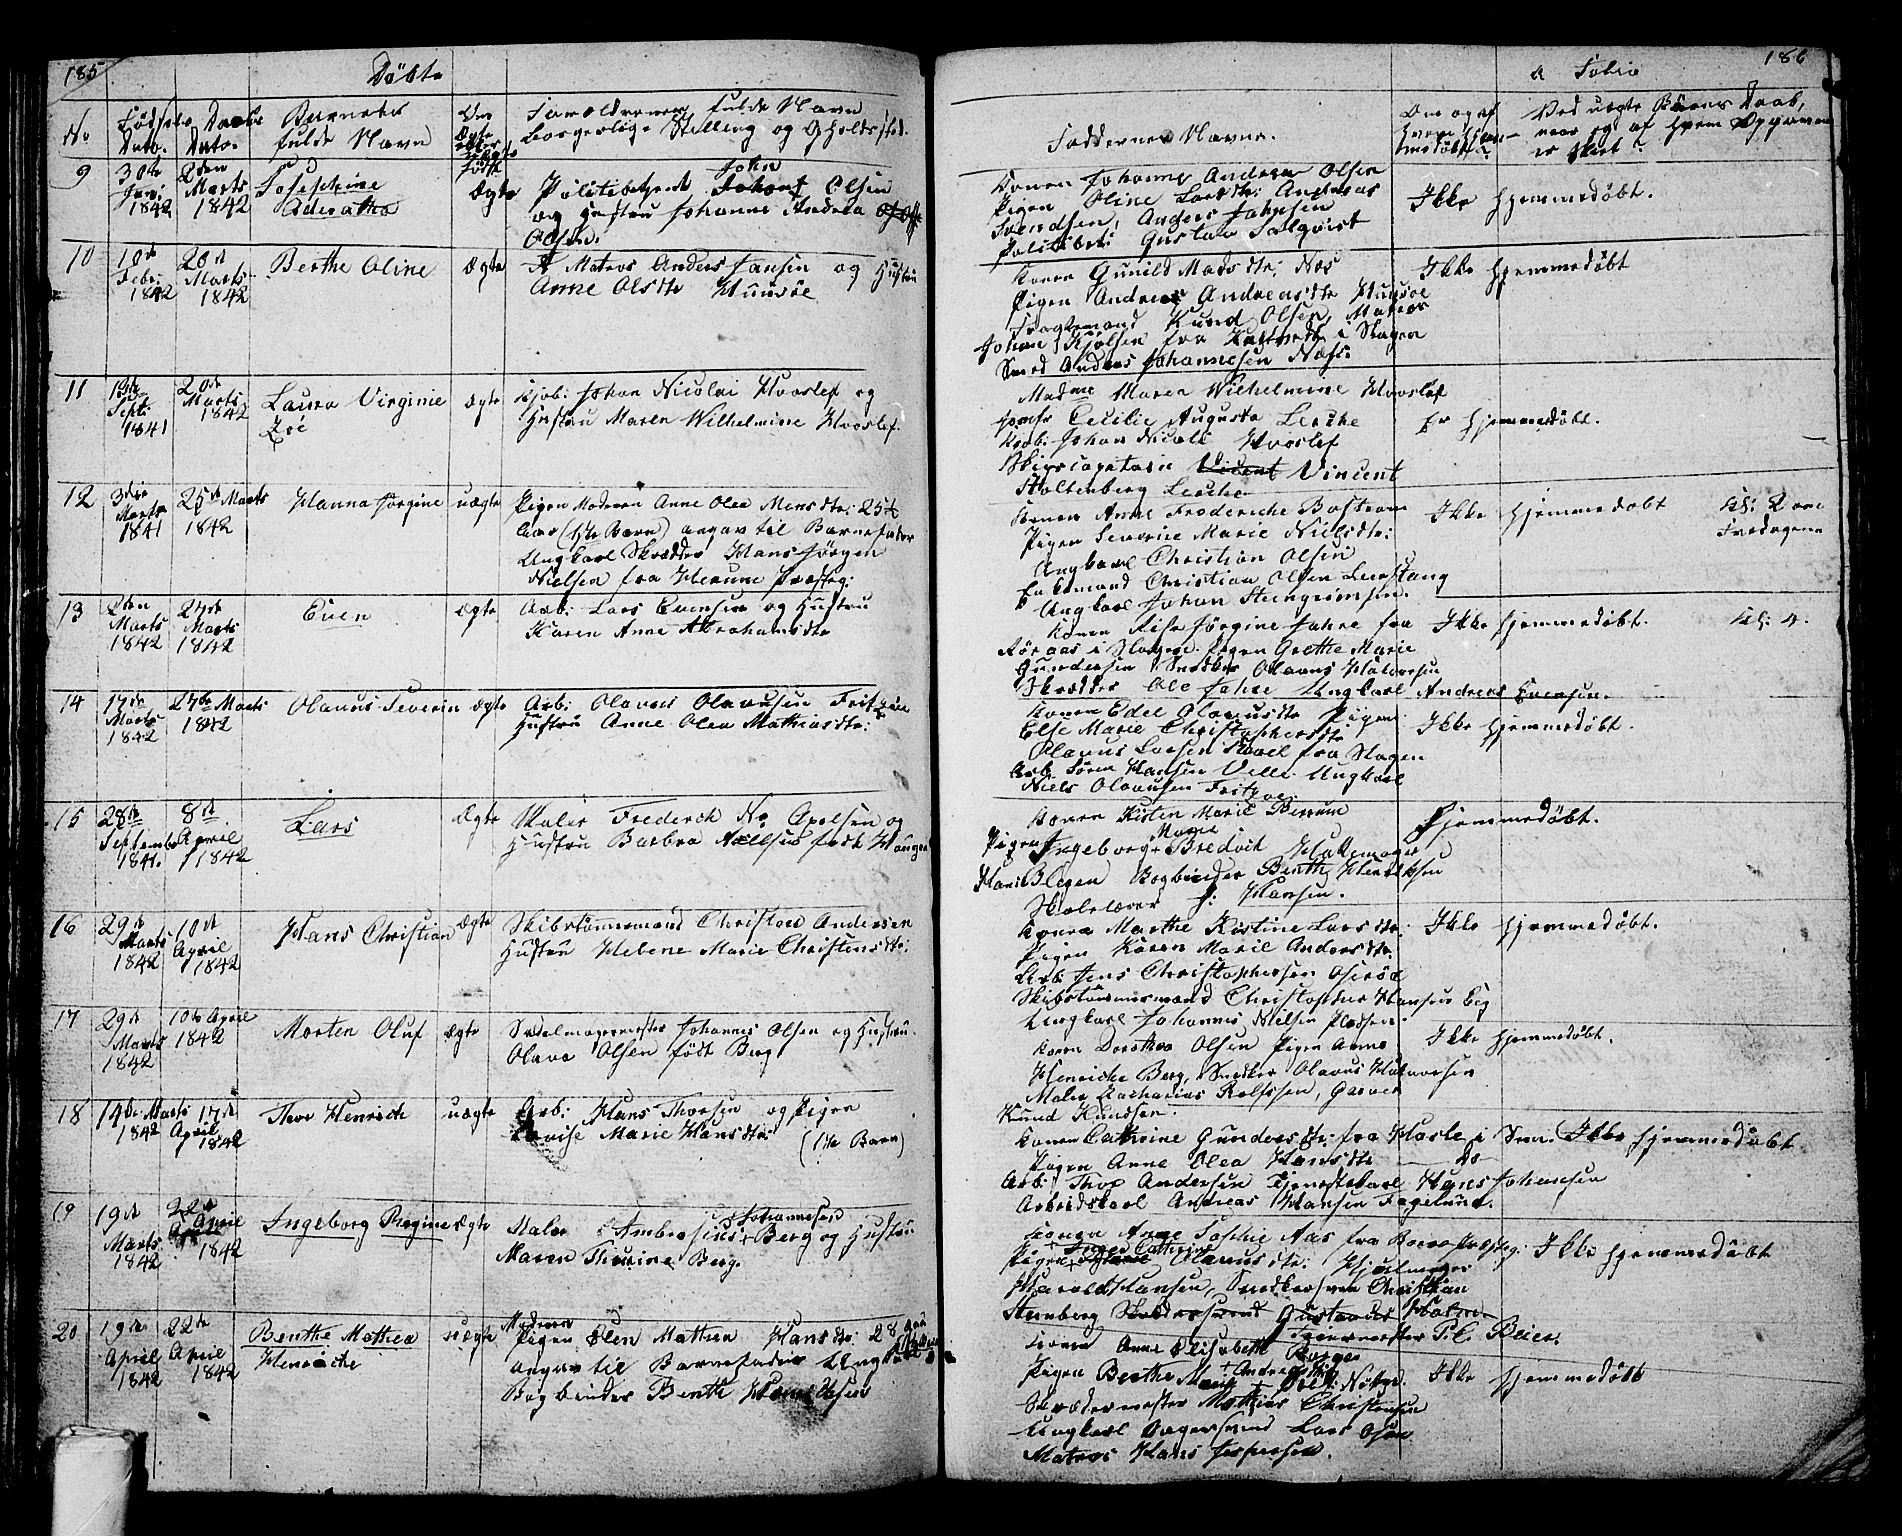 185
Døbte
No
Fødsels Dato.
Daabs Dato.
Barnets fulde Navn
Om Ægte eller uægte født
Forældrenes fulde Navn
borgerlige Stilling og Opholdssted.
9
30te Janj 1842
2den Marts 1842
Josephine
ægte
Politibetjent John Olsen
og Hustru Johanne Andrea
Olsen.
10
10de Febr: 1842
20de Marts 1842
Berthe Oline
ægte
Matros Anders Jansen og Hustru
Anne Olsdtr Huusøe
11
Sept: 1841
20de Marts 1842
Laura Virginie
Zoë
ægte
Kjøb: Johan Nicolai Hvoslef og
Hustru Maren Wilhelmine Hvoslef.
12
3die Marts 1841
25de Marts 1842
Hanna Jørgine
uægte
Pigen Moderen Anne Olea Mensdtr: 25½
Aar (1ste Barn) angav til Barnefader
Ungkarl Skrædder Hans Jørgen
Nielsen fra Herume Præsteg:
13
2den Marts 1842
27de Marts 1842
Even
ægte
Arb: Lars Evensen og Hustru
Karen Anne Abrahamsdtr
14
17de Marts 1842
27de Marts 1842
Olavus Severin
ægte
Arb: Olavus Olavusen Fritzøe
Hustru Anne Olea Mathiasdtr:
15
28de September 1841.
8de April 1842
Lars
ægte
Maler Frederch No Apelsen og
Hustru Barbra Axelsen født Hougen
16
29de Marts 1842
10de April 1842
Hans Christian
ægte
Skibstømmermand Christian Andersen
Hustru Helene Marie Christensdtr:
17
29de Marts 1842
10de April 1842
Morten Oluf
ægte
Sadelmagermester Johannes Olsen og Hustru
Olava Olsen født Berg
18
14de Marts 1842
17de April 1842
Thor Henrich
uægte
Arb: Hans Thorsen og Pigen
Lovise Marie Hansdtr: (1ste Barn)
19
19de Marts 1842
22de April 1842
Ingeborg Regine
ægte
Maler Ambrosius Johannesen Berg og Hustru
Maren Thorine Berg.
20
19de April 1842
22de April 1842
Benthe Mathea
Henriche
uægte
Moderen
Pigen Elen Mathea Hansdtr: 28
angav til Barnefader Ungkarl
Bogbinder Benth Henrichsen
186
a Tobia
Faddernes Navne.
Om og af hvem hjemmedøbt?
Ved uægte Børns Daab,
naar og af hvem Opgaven
er skeet?
Konen Johanne Andrea Olsen
Pigen Oline Larsdtr: Andreas
Svendsen, Anders Johnsen
Politibetj: Gustav Salqvist
Ikke hjemmedøbt.
Konen Gunild Madsdtr: Næs
Pigen Andrea Andreasdtr Huusøe
Fragtemand Knud Olsen, Matros
Johan Kjølsen fra i Slagen
Smed Anders Johannesen Næss.
Ikke hjemmedøbt
Madme Maren Wilhelmine Hvoslef
Jomfr Cecilie Augusta Lerche
Kjøb: Johan Nicolai Hvoslef
Skipscapetain Vincent Vincent
Stoltenberg Lerche
Er hjemmedøbt.
Konen Anne Frederiche Bostrøm
Pigen Severine Marie Nielsdtr:
Ungkarl Christian Olsen
Christian Olsen Leerstang
Ungkarl Johan Steingrimsen.
Ikke hjemmedøbt
Konen Else Jørgine Jahre fra
Røraas i Slagen. Pigen Grethe Marie
Gundersen Snedker Olavus Halvorsen
Skrædder Ole Jahre Ungkarl Andreas Evensen.
Ikke hjemmedøbt.
kl: 4.
Konen Edel Olavusdtr Pigen
Else Marie Christophersdtr
Olavus Larsen fra Slagen
Arb: Søren Hansen Velle. Ungkarl
Niels Olavusen Fritzøe.
Ikke hjemmedøbt.
Konen Kirsten Marie Berrum
Pigen Ingeborg Marie Bredvik Hattemager
Blegen Bogbinder Benth Henriksen
Skolelærer J: Hansen.
Hjemmedøbt.
Konen Marthe Kirstine Larsdtr:
Pigen Karen Marie Andersdtr.
Arb: Jens Christophersen Oserød
Skibstømmermand Christopher Hansen Eeg
Ungkarl Johannes Nielsen Pladsen.
Ikke hjemmedøbt.
Konen Dorothea Olsen Pigen Anne
Henriche Berg, Snedker Olavus Halvorsen
Maler Zacharias Rolfsen, Garver
Knud Knudsen.
Ikke hjemmedøbt.
Konen Cathrine Gundersdtr: fra Hasle i Sem.
Pigen Anne Olea Hansdtr — do —
Arb: Thor Andersen Tjenestekarl Hans Johansen
Arbeidskarl Andreas Hansen Fagelund.
Ikke hjemmedøbt
Konen Anne Sophie Aas fra Borre Præsteg:
Pigen Inger Cathrine Olavusdtr: Hjulmager
Harald Hansen, Snedkersvend Christian
Steinberg
Garvermester P. C. Beier.
Ikke hjemmedøbt
Konen Anne Elisabeth Borger
Pigen Berthe Marie Nøbye.
Skrædermester Mathias Christensen
Ungkarl Lars Olsen
Matros Hans Jespersen.
Ikke hjemmedøbt